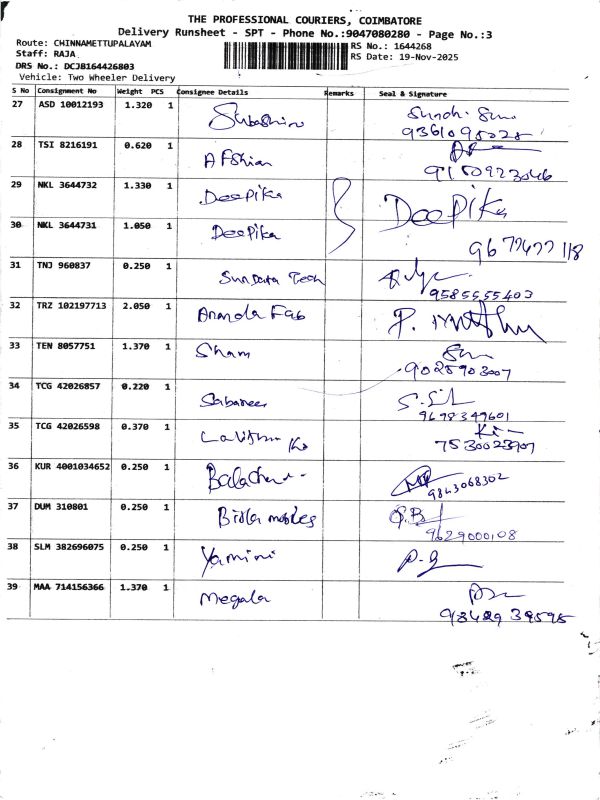 THE PROFESSIONAL COURIERS, COIMBATORE
Delivery Runsheet - SPT - Phone No.:9047080280 - Page No.:3
Route: CHINNAMETTUPALAYAM
RS No.: 1644268
Staff: RAJA
RS Date: 19-Nov-2025
DRS No.: DCJB164426803
Vehicle: Two Wheeler Delivery
S No Consignment No Weight PCS Consignee Details Remarks Seal & Signature
27 ASD 10012193 1.320 1 Subashini
28 TSI 8216191 0.620 1 Afshian
29 NKL 3644732 1.330 1 Deepika Deepika
30 NKL 3644731 1.050 1 Deepika
31 TNJ 960837 0.250 1 Sundara Tech
9585555403
32 TRZ 102197713 2.050 1 Ananda Fab
33 TEN 8057751 1.370 1 Sham
9025903007
34 TCG 42026857 0.220 1
9698349601
35 TCG 42026598 0.370 1
7530023907
36 KUR 4001034652 0.250 1
9843068302
37 DUM 310801 0.250 1 Birla mobiles
9629000108
38 SLM 382696075 0.250 1 Yamini
39 MAA 714156366 1.370 1 Megala